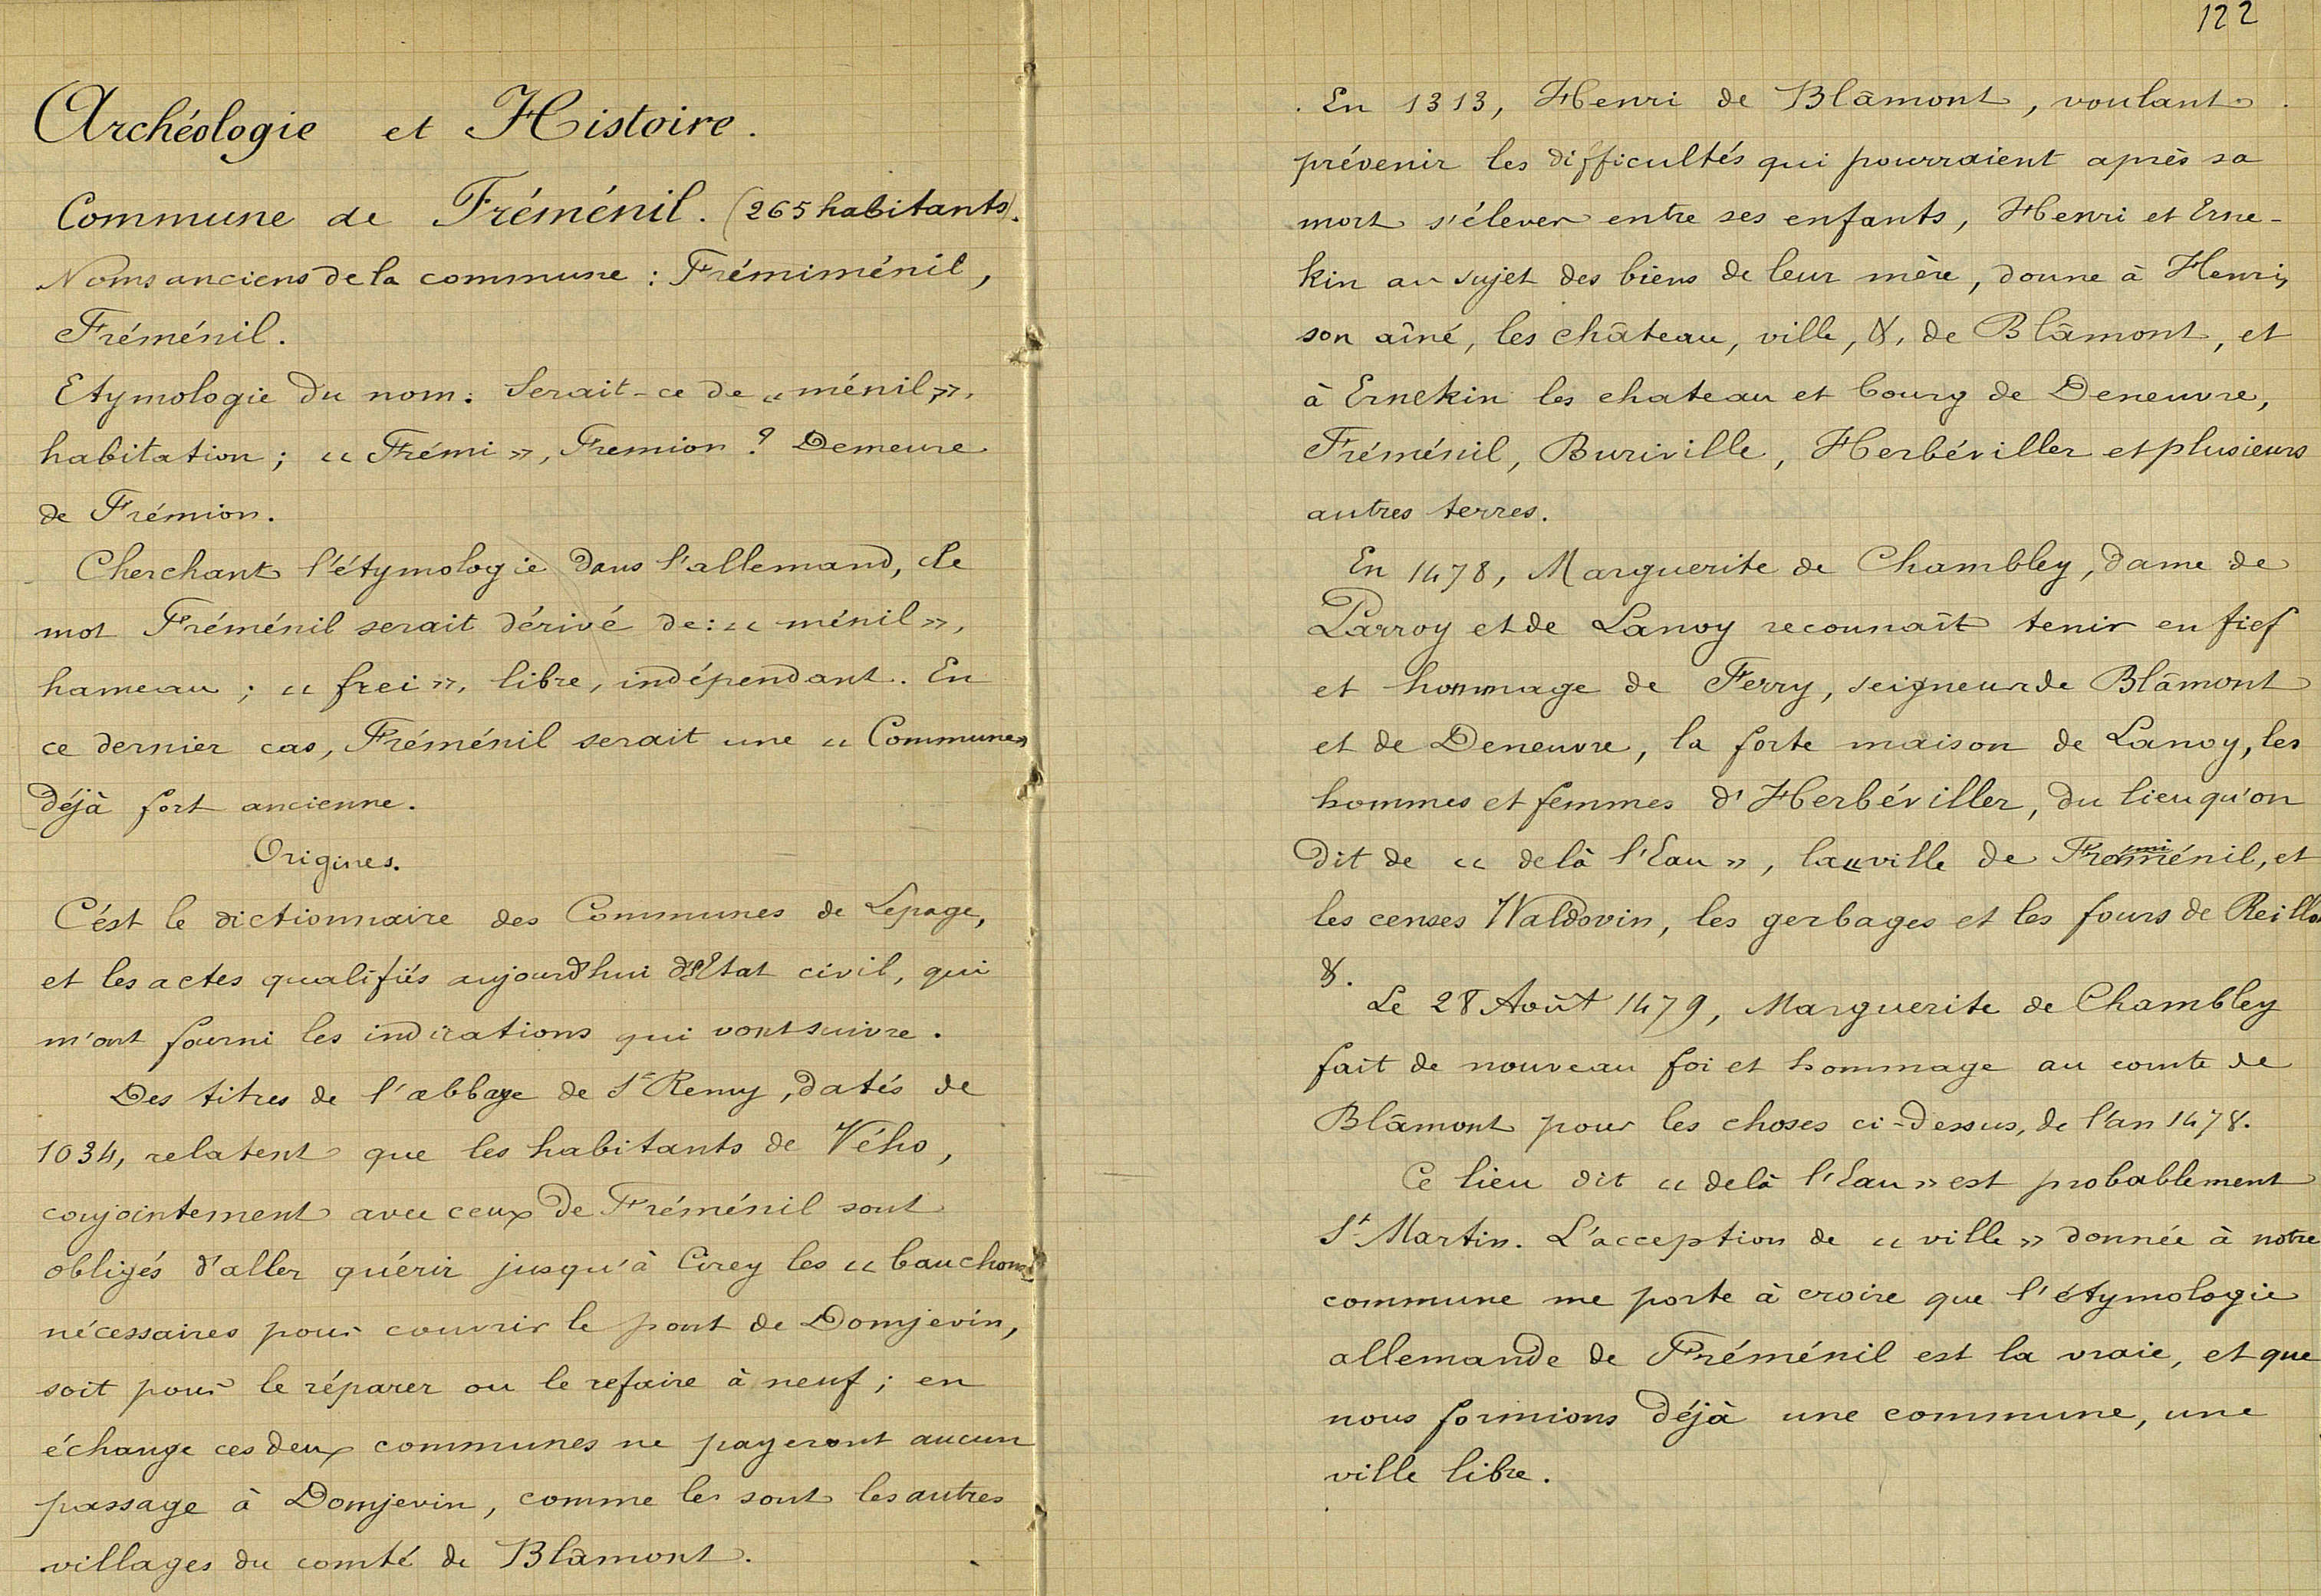 Archéologie et Histoire.
Commune de Fréménil. (265 habitants).
Noms anciens de la commune : Frémiménil,
Fréménil.
Etymologie du nom : Serait-ce de « ménil »,
habitation ; « Frémi », Fremion ? Demeure
de Frémion.
Cherchant l'étymologie dans l'allemand, le
mot Fréménil serait dérivé de : « ménil »,
hameau ; « frei », libre, indépendant. En
ce dernier cas, Fréménil serait une « Commune »
déjà fort ancienne.
Origines.
C'est le dictionnaire des Communes de Lepage,
et les actes qualifiés aujourd'hui d'Etat civil, qui
m'ont fourni les indications qui vont suivre.
Des titres de l'abbaye de St Remy, datés de
1034, relatent que les habitants de Vého,
conjointement avec ceux de Fréménil sont
obligés d'aller quérir jusqu'à Cirey les « bauchons
nécessaires pour couvrir le pont de Domjevin,
soit pour le réparer ou le refaire à neuf ; en
échange ces deux communes ne payeront aucun
passage à Domjevin, comme les sont les autres
villages du comté de Blâmont.
122
En 1313, Henri de Blâmont, voulant
prévenir les difficultés qui pourraient après sa
mort s'élever entre ses enfants, Henri et Erne-
kin au sujet des biens de leur mère, donne à Henri,
son aîné, les château, ville, &, de Blâmont, et
à Ernekin les chateau et bourg de Deneuvre,
Fréménil, Buriville, Herbéviller et plusieurs
autres terres.
En 1478, Marguerite de Chambley, dame de
Parroy et de Lanoy reconnaît tenir en fief
et hommage de Ferry, seigneur de Blâmont
et de Deneuvre, la forte maison de Lanoy, les
hommes et femmes d'Herbéviller, du lieu qu'on
dit de « delà l'Eau », la « ville de Frémiménil, et
les censes Waldovin, les gerbages et les fours de Reillon
&.
Le 28 Août 1479, Marguerite de Chambley
fait de nouveau foi et hommage au comte de
Blâmont pour les choses ci-dessus, de l'an 1478.
Ce lieu dit « delà l'Eau » est probablement
St Martin. L'acception de « ville » donnée à notre
commune me porte à croire que l'étymologie
allemande de Fréménil est la vraie, et que
nous formions déjà une commune, une
ville libre.